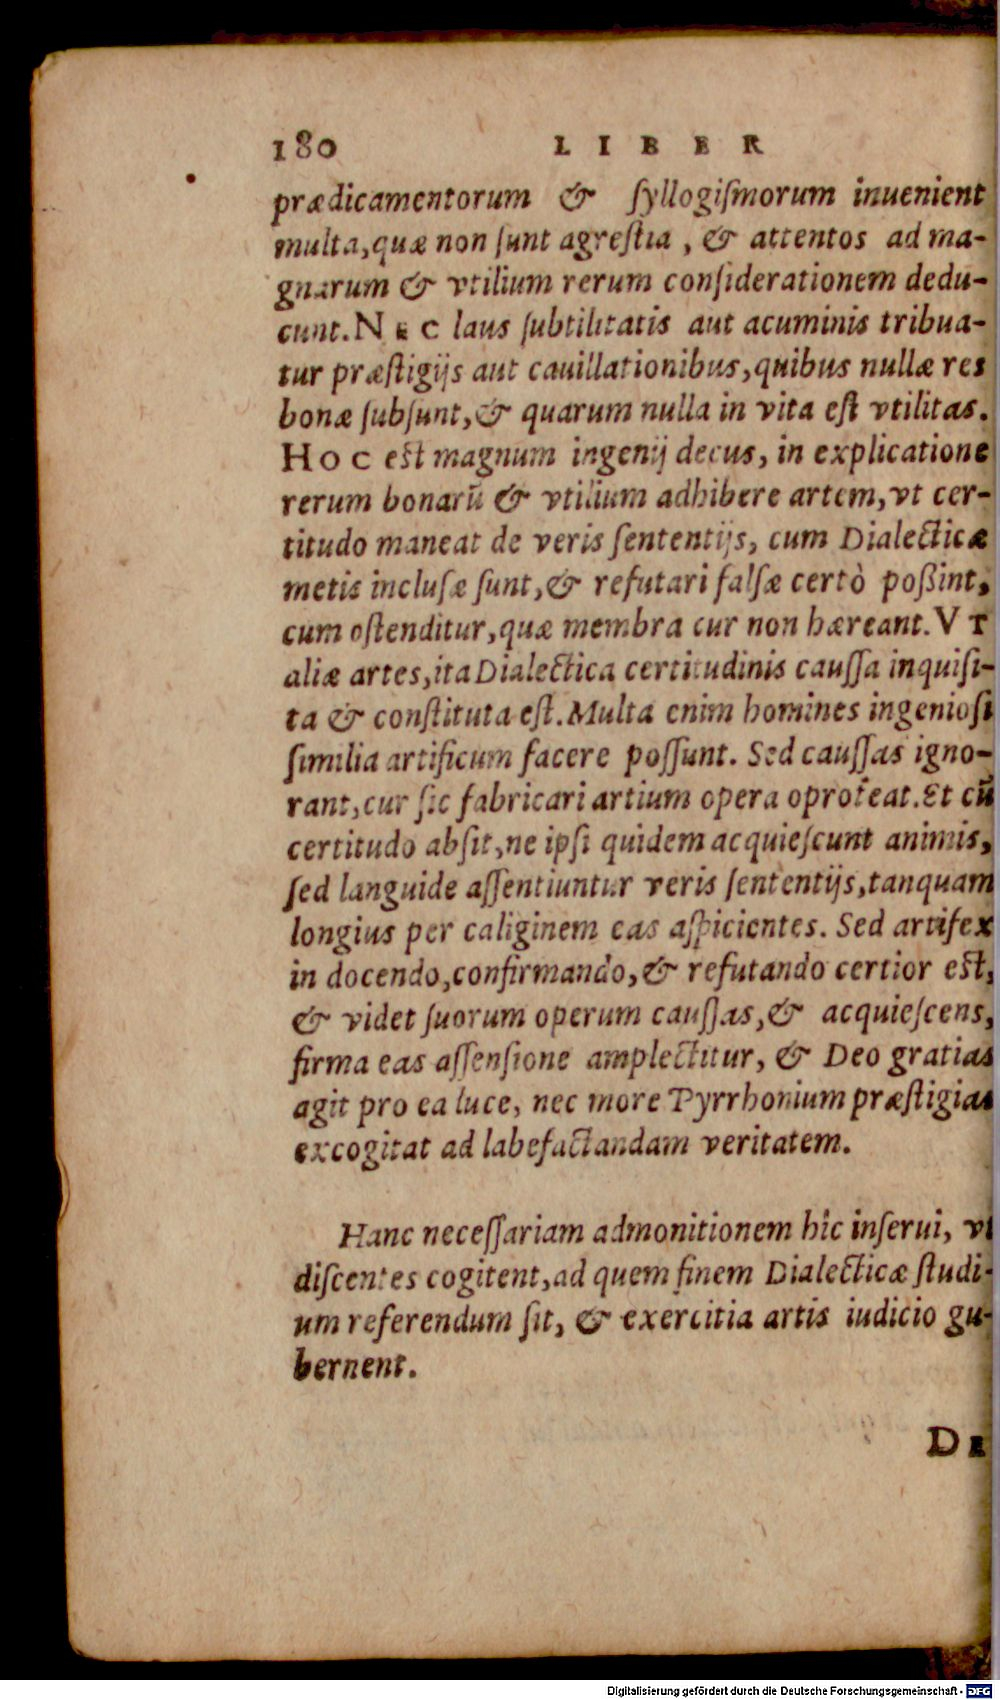 180 LIBER
prædicamentorum & ſyllogiſmorum inuenient
multa,quæ non ſunt agreſtia , & attentos ad ma-
gnarum & vtilium rerum conſiderationem dedu-
cunt.NEC laus ſubtilitatis aut acuminis tribua-
tur præſtigijs aut cauillationibus,quibus nullæ res
bonæ ſubſunt,& quarum nulla in vita eſt vtilitas.
HOC eſt magnum ingenij decus, in explicatione
rerum bonarũ & vtilium adhibere artem,vt cer-
titudo maneat de veris ſententijs, cum Dialecticæ
metis incluſæ ſunt,& refutari falſæ certò poßint,
cum oſtenditur,quæ membra cur non hæreant.VT
aliæ artes,ita Dialectica certitudinis cauſſa inquiſi-
ta & conſtituta eſt.Multa enim homines ingenioſi
ſimilia artificum facere poſſunt. Sed cauſſas igno-
rant,cur ſic fabricari artium opera oproteat.Et cũ
certitudo abſit,ne ipſi quidem acquieſcunt animis,
ſed languide aſſentiuntur veris ſententijs,tanquam
longius per caliginem eas aſpicientes. Sed artifex
in docendo,confirmando,& refutando certior eſt,
& videt ſuorum operum cauſſas,& acquieſcens,
firma eas aſſenſione amplectitur, & Deo gratias
agit pro ea luce, nec more Pyrrhonium præſtigias
excogitat ad labefactandam veritatem.
Hanc neceſſariam admonitionem hîc inſerui, vt
diſcentes cogitent,ad quem finem Dialecticæ ſtudi-
um referendum ſit, & exercitia artis iudicio gu-
bernent.
DE
Digitalisierung gefördert durch die Deutsche Forschungsgemeinschaft - DFG